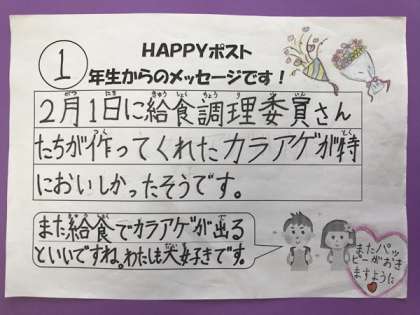 HAPPYポスト
1年生からのメッセージです！
2月1日に給食調理委員さん
たちが作ってくれたカラアゲが特
においしかったそうです。
また給食でカラアゲが出る
といいですね。わたしも大好きです。
またハッ
ピーがおき
ますように